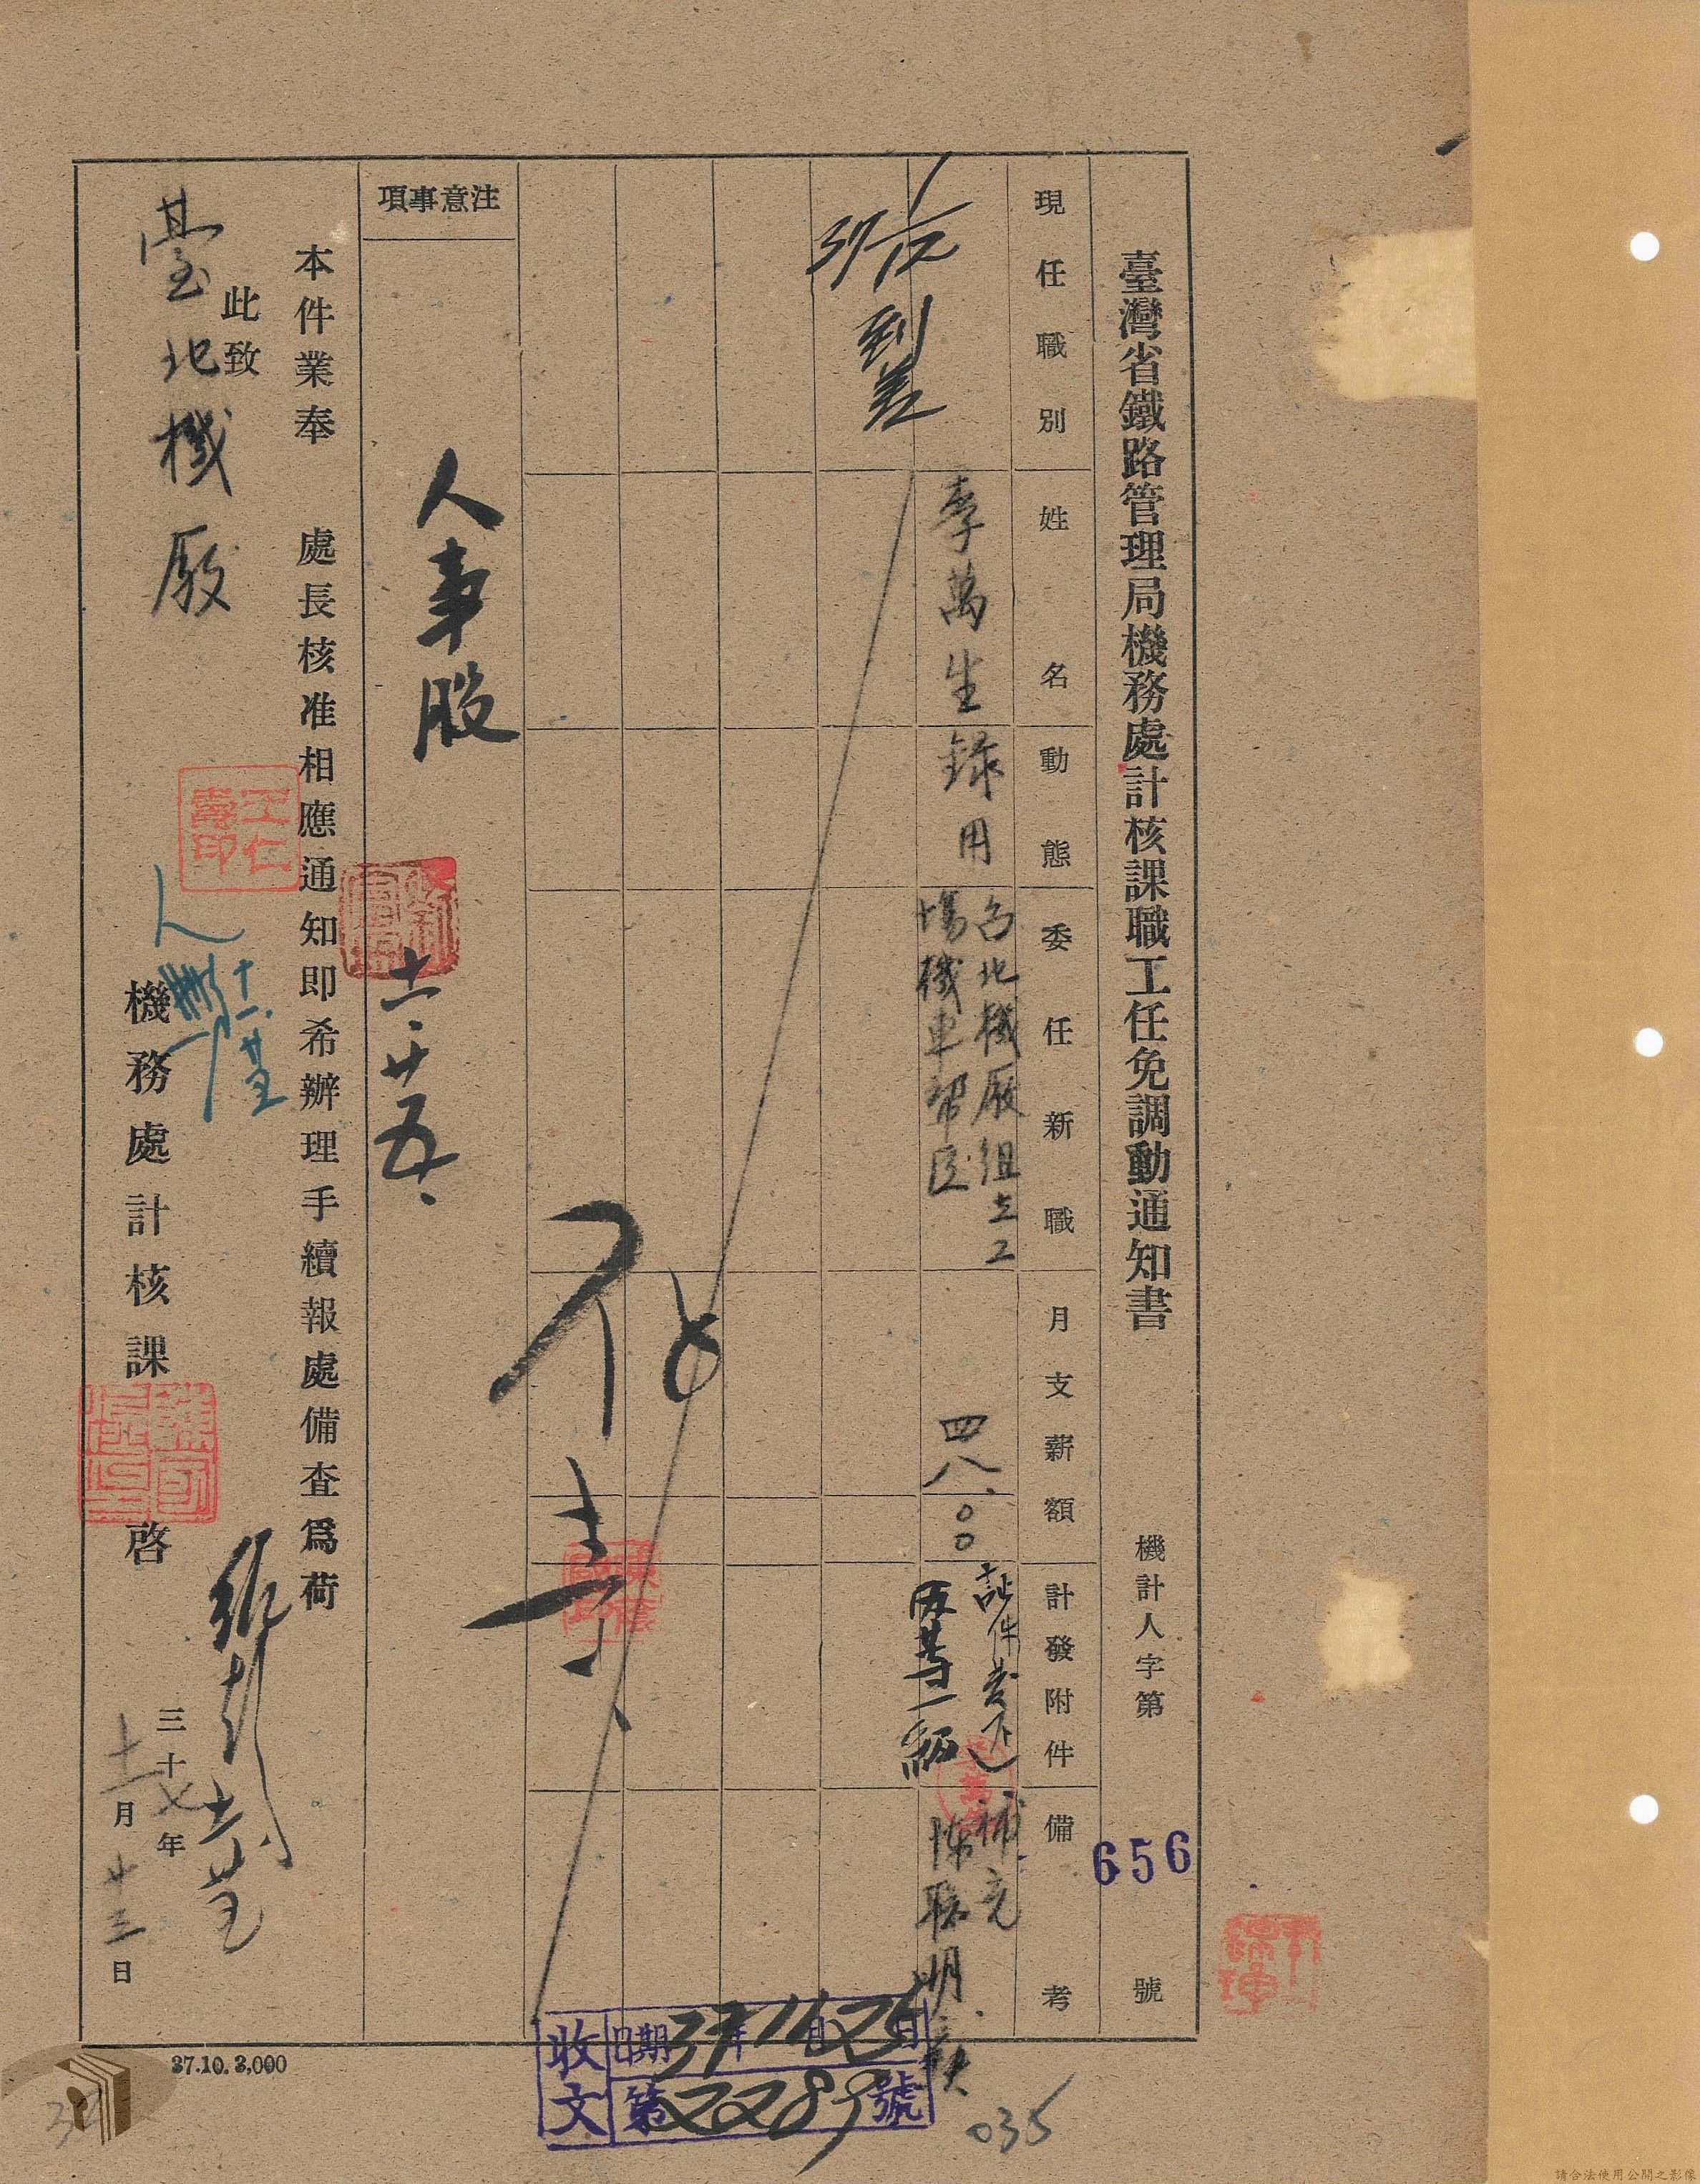 臺灣省鐵路管理局機務處計核課職工任免調動通知書
機計人字第 656 號
現任職別
姓名
動態
委任新職
月支薪額
計發附件
備考
李萬生
錄用
台北機廠組立工
場機車幫匠
四八.〇〇
證件發還
丙等一級
補充
陳聰明缺
37 到差
注意事項
人事股
十一.廿五.
本件業奉 處長核准相應通知即希辦理手續報處備查爲荷
此致
臺北機廠
機務處計核課 啓
三十七年
十一月廿三日
收文
日期 37年11月25日
第2289號
37.10.3,000
035
請合法使用公開之影像